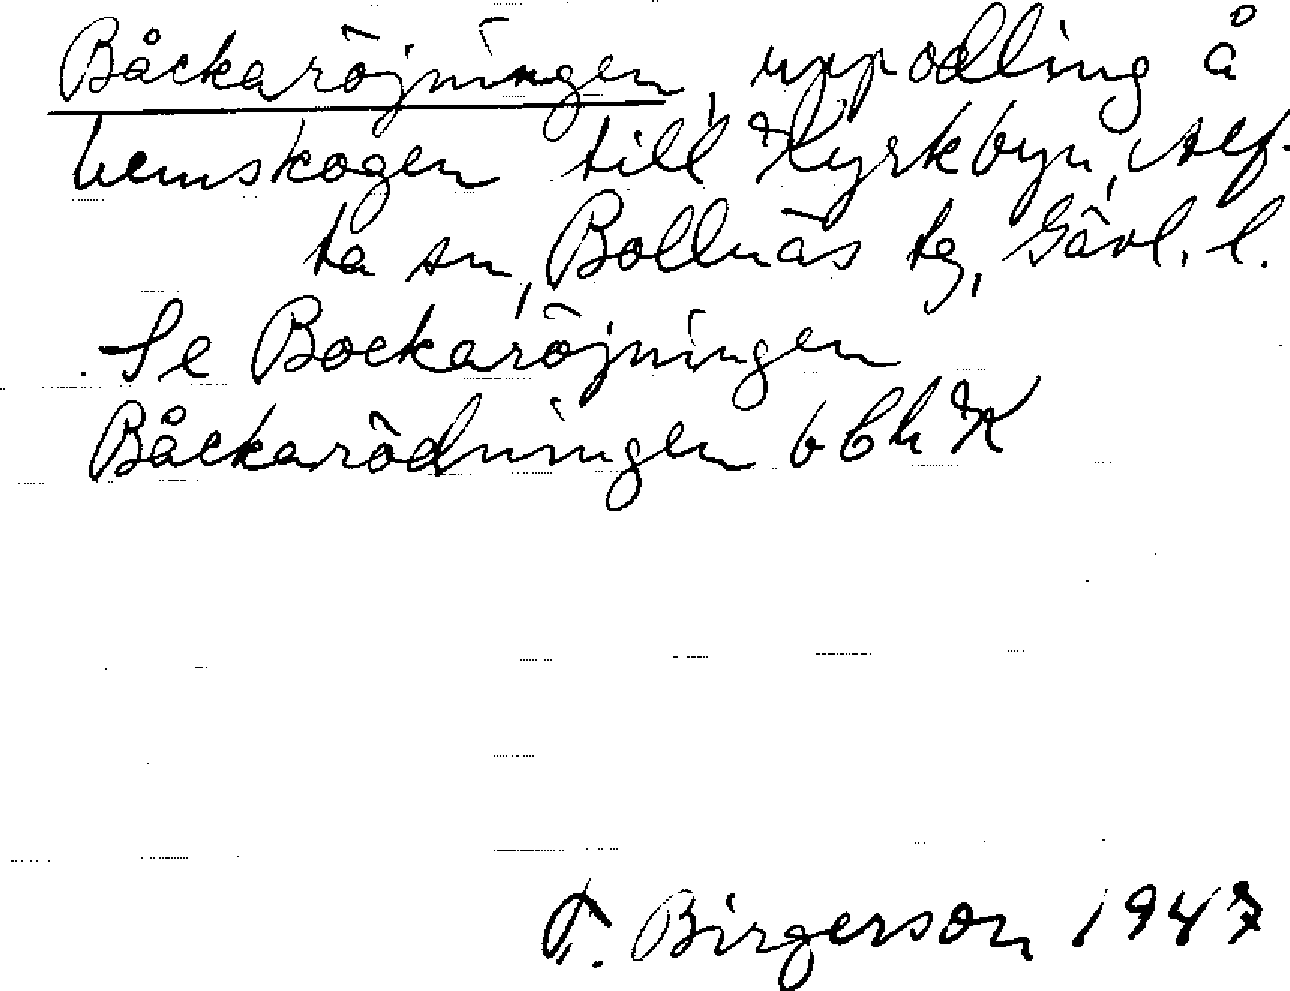 Båckaröjningen, uppodling å
hemskogen till Kyrkbyn, Alf-
ta sn, Bollnäs tg, Gävl. l.
Se Bockaröjningen
Båckarödningen
F. Birgerson 1947